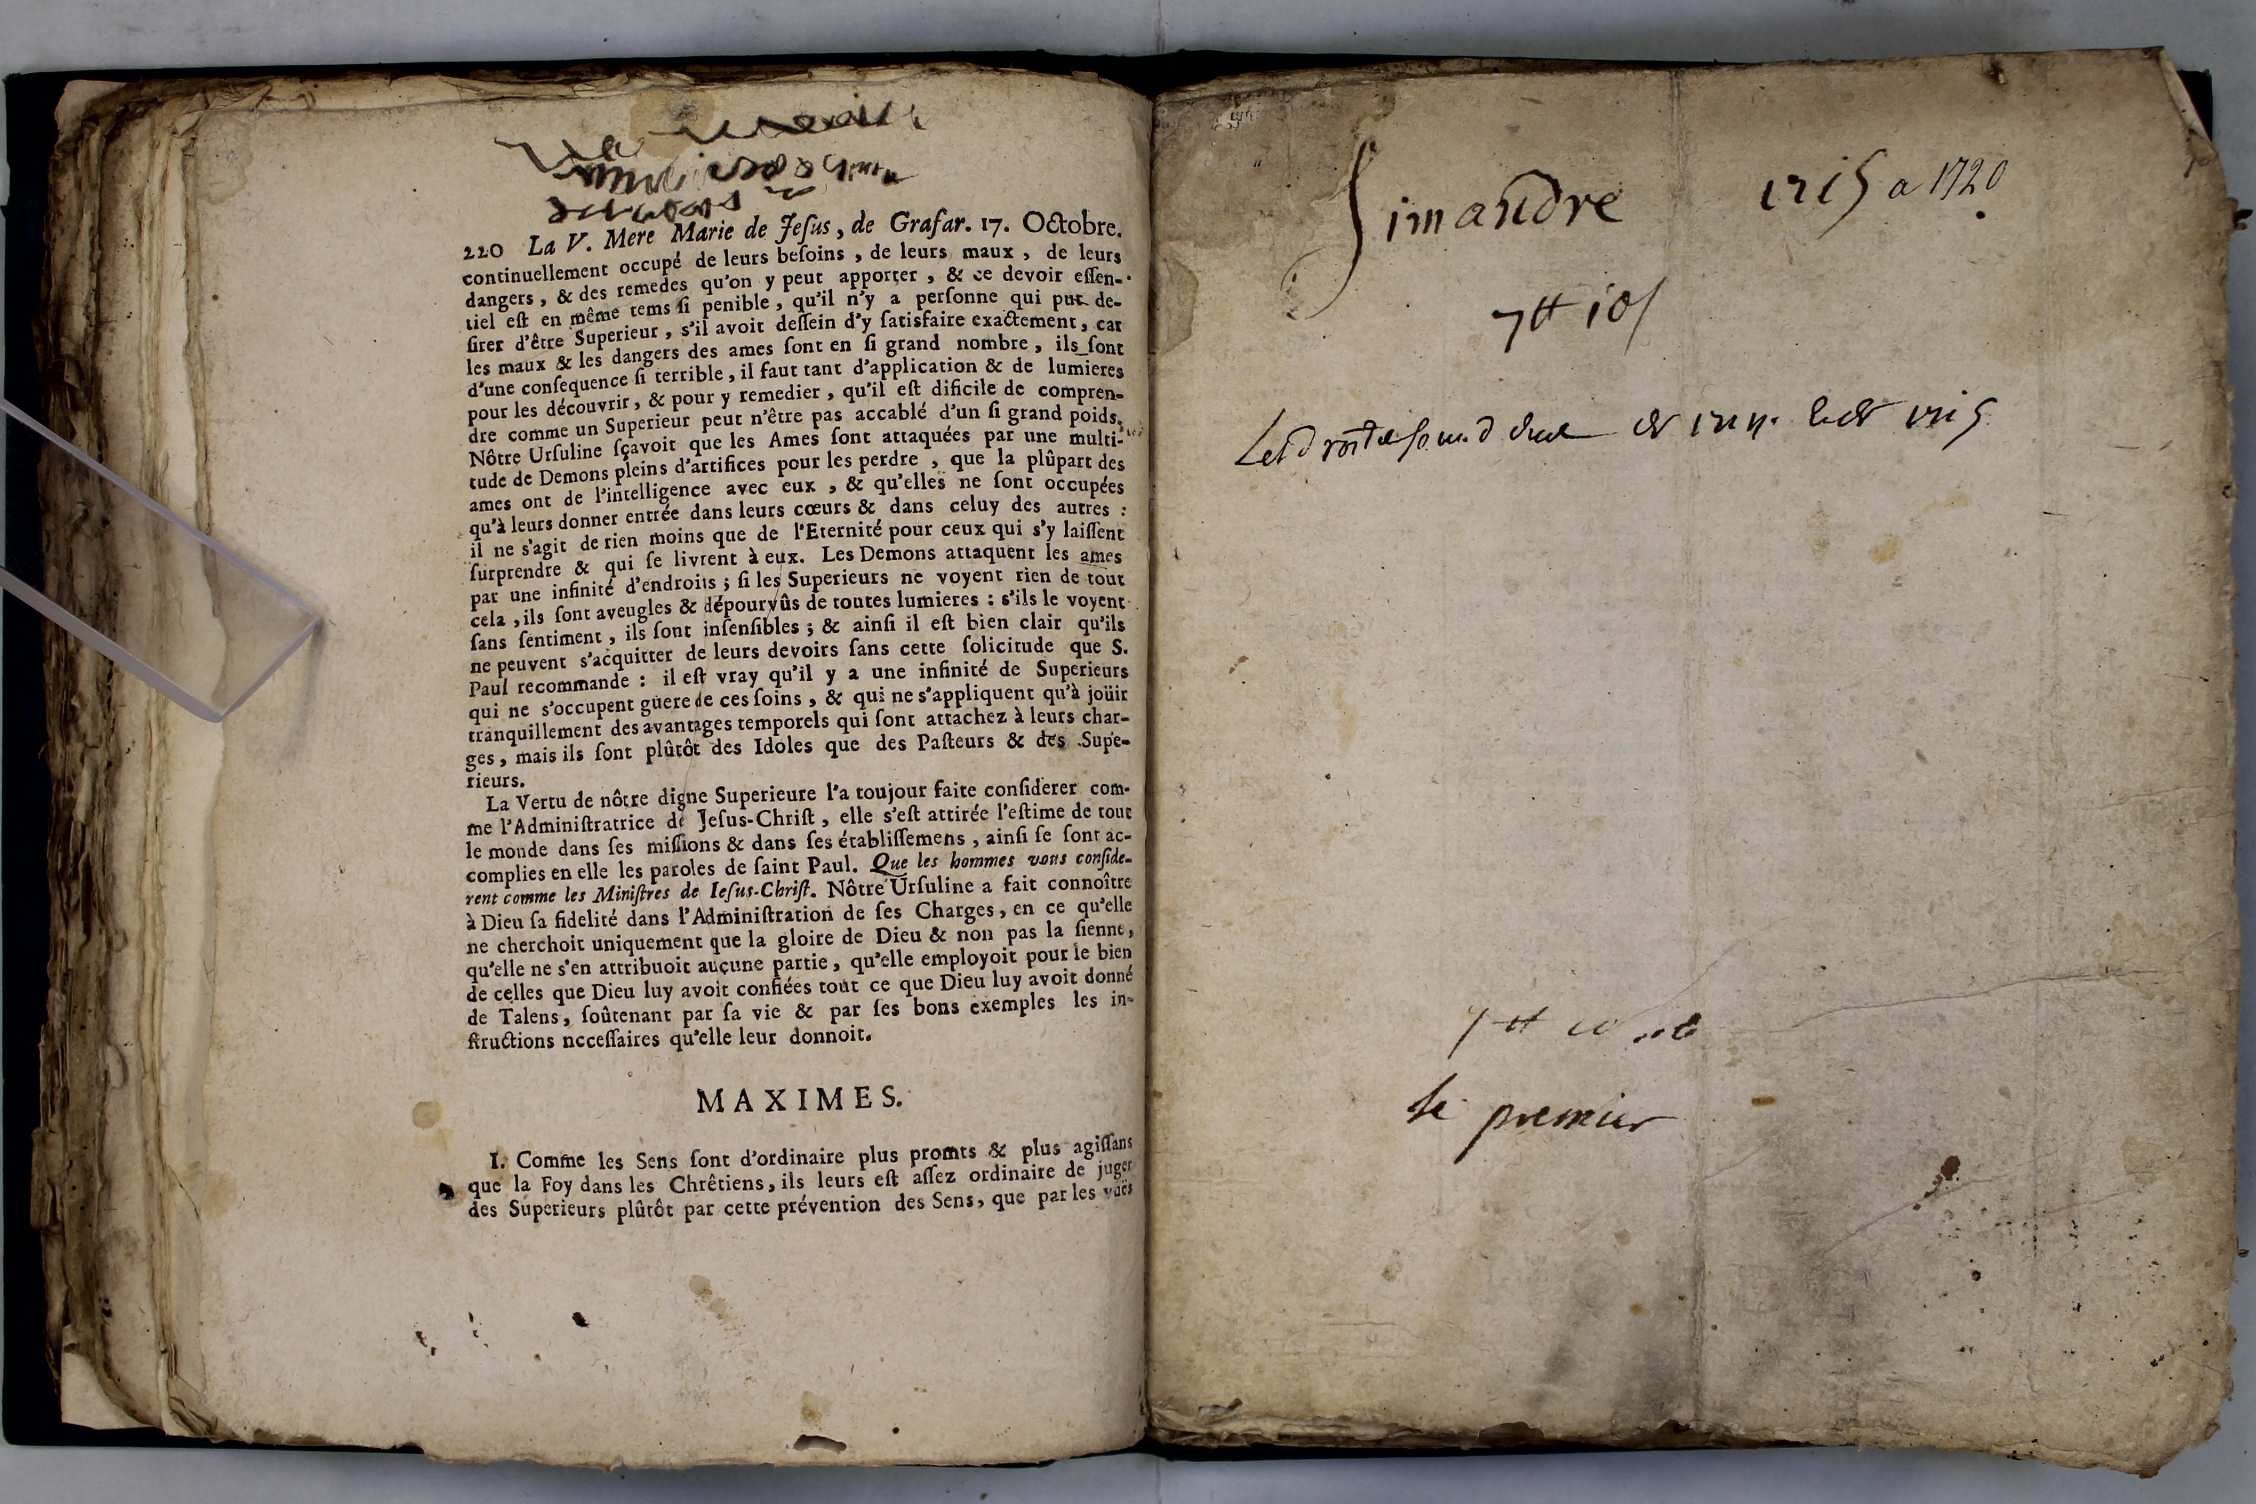 220 La V. Mere Marie de Jeſus, de Graſar. 17. Octobre.
continuellement occupé de leurs beſoins, de leurs maux, de leurs
dangers, & des remedes qu'on y peut apporter, & ce devoir eſſen-
tiel eſt en même tems ſi penible, qu'il n'y a perſonne qui put de-
ſirer d'être Superieur, s'il avoit deſſein d'y ſatisfaire exactement, car
les maux & les dangers des ames ſont en ſi grand nombre, ils ſont
d'une conſequence ſi terrible, il faut tant d'application & de lumieres
pour les découvrir, & pour y remedier, qu'il eſt dificile de compren-
dre comme un Superieur peut n'être pas accablé d'un ſi grand poids.
Nôtre Urſuline ſçavoit que les Ames ſont attaquées par une multi-
tude de Demons pleins d'artifices pour les perdre, que la plûpart des
ames ont de l'intelligence avec eux, & qu'elles ne ſont occupées
qu'à leurs donner entrée dans leurs cœurs & dans celuy des autres :
il ne s'agit de rien moins que de l'Eternité pour ceux qui s'y laiſſent
ſurprendre & qui ſe livrent à eux. Les Demons attaquent les ames
par une infinité d'endroits ; ſi les Superieurs ne voyent rien de tout
cela, ils ſont aveugles & dépourvûs de toutes lumieres : s'ils le voyent
ſans ſentiment, ils ſont inſenſibles ; & ainſi il eſt bien clair qu'ils
ne peuvent s'acquitter de leurs devoirs ſans cette ſolicitude que S.
Paul recommande : il eſt vray qu'il y a une infinité de Superieurs
qui ne s'occupent guere de ces ſoins, & qui ne s'appliquent qu'à joüir
tranquillement des avantages temporels qui ſont attachez à leurs char-
ges, mais ils ſont plûtôt des Idoles que des Paſteurs & des Supe-
rieurs.
La Vertu de nôtre digne Superieure l'a toujour faite conſiderer com-
me l'Adminiſtratrice de Jeſus-Chriſt, elle s'eſt attirée l'eſtime de tout
le monde dans ſes miſſions & dans ſes établiſſemens, ainſi ſe ſont ac-
complies en elle les paroles de ſaint Paul. Que les hommes vous conſide-
rent comme les Miniſtres de Ieſus-Chriſt. Nôtre Urſuline a fait connoître
à Dieu ſa fidelité dans l'Adminiſtration de ſes Charges, en ce qu'elle
ne cherchoit uniquement que la gloire de Dieu & non pas la ſienne,
qu'elle ne s'en attribuoit aucune partie, qu'elle employoit pour le bien
de celles que Dieu luy avoit confiées tout ce que Dieu luy avoit donné
de Talens, ſoûtenant par ſa vie & par ſes bons exemples les in-
ſtructions neceſſaires qu'elle leur donnoit.
MAXIMES.
I. Comme les Sens ſont d'ordinaire plus promts & plus agiſſans
que la Foy dans les Chrêtiens, ils leurs eſt aſſez ordinaire de juger
des Superieurs plûtôt par cette prévention des Sens, que par les vuës
Simandre 1715 a 1720
7 tt 10 s
1715
le premier